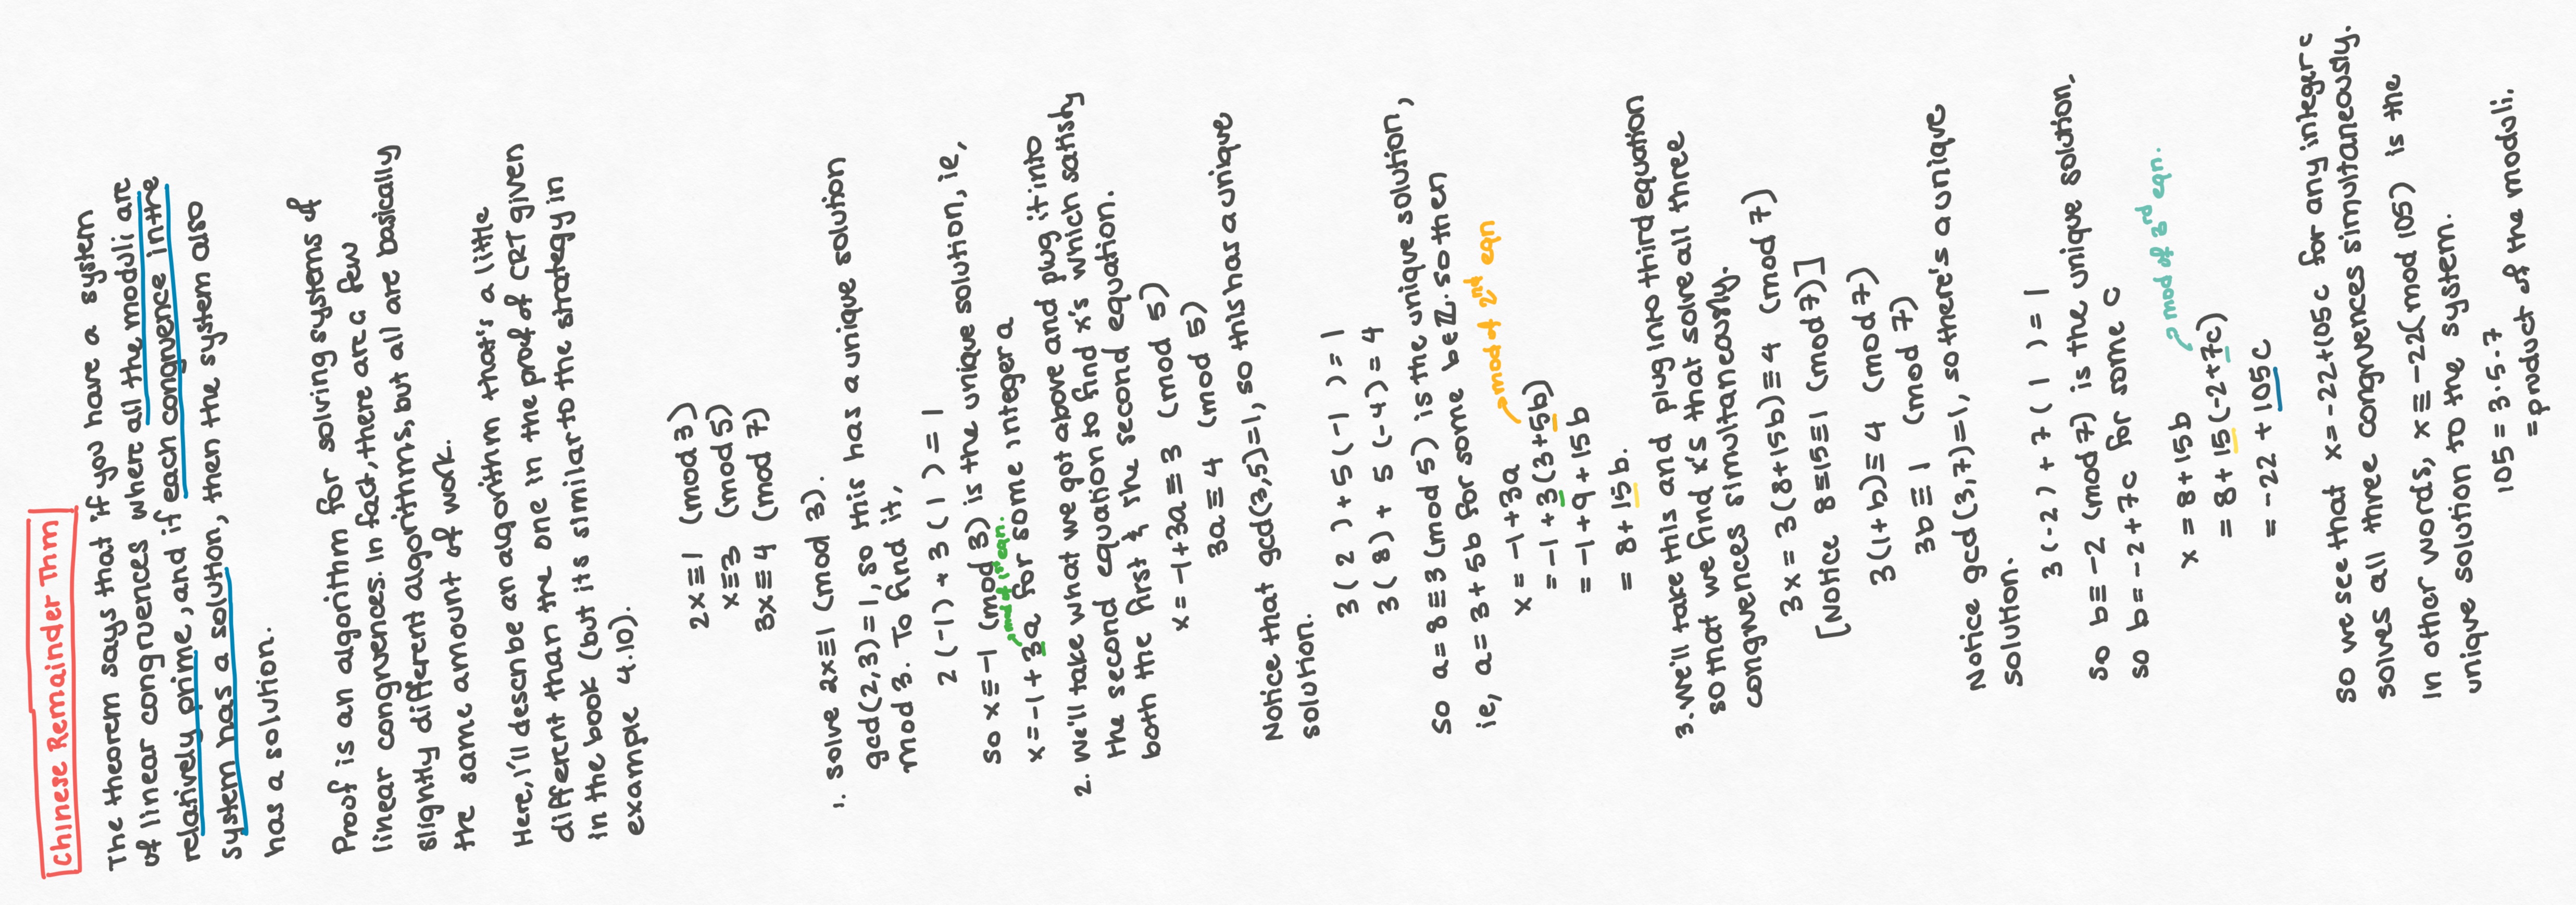 Chinese Remainder Thm
The theorem says that if you have a system
of linear congruences where all the moduli are
relatively prime, and if each congruence in the
system has a solution, then the system also
has a solution.
Proof is an algorithm for solving systems of
linear congruences. In fact, there are a few
slightly different algorithms, but all are basically
the same amount of work.
Here, I'll describe an algorithm that's a little
different than the one in the proof of CRT given
in the book (but its similar to the strategy in
example 4.10).
2x≡1 (mod 3)
x≡3 (mod 5)
3x≡4 (mod 7)
1. Solve 2x≡1 (mod 3).
gcd(2,3)=1, so this has a unique solution
mod 3. To find it,
2(-1)+3(1)=1
So x≡-1 (mod 3) is the unique solution, ie,
mod of 1st eqn.
x=-1+3a for some integer a
2. We'll take what we got above and plug it into
the second equation to find x's which satisfy
both the first & the second equation.
x=-1+3a≡3 (mod 5)
3a≡4 (mod 5)
Notice that gcd(3,5)=1, so this has a unique
solution.
3(2)+5(-1)=1
3(8)+5(-4)=4
So a=8≡3 (mod 5) is the unique solution,
ie, a=3+5b for some b∈ℤ. so then
x=-1+3a
mod of 2nd eqn
=-1+3(3+5b)
=-1+9+15b
=8+15b.
3. We'll take this and plug into third equation
so that we find x's that solve all three
congruences simultaneously.
3x=3(8+15b)≡4 (mod 7)
[Notice 8≡15≡1 (mod 7)]
3(1+b)≡4 (mod 7)
3b≡1 (mod 7)
Notice gcd(3,7)=1, so there's a unique
solution.
3(-2)+7(1)=1
So b≡-2 (mod 7) is the unique solution.
so b=-2+7c for some c
x=8+15b
mod of 3rd eqn.
=8+15(-2+7c)
=-22+105c
So we see that x=-22+105c for any integer c
solves all three congruences simultaneously.
In other words, x≡-22(mod 105) is the
unique solution to the system.
105=3·5·7
=product of the moduli.